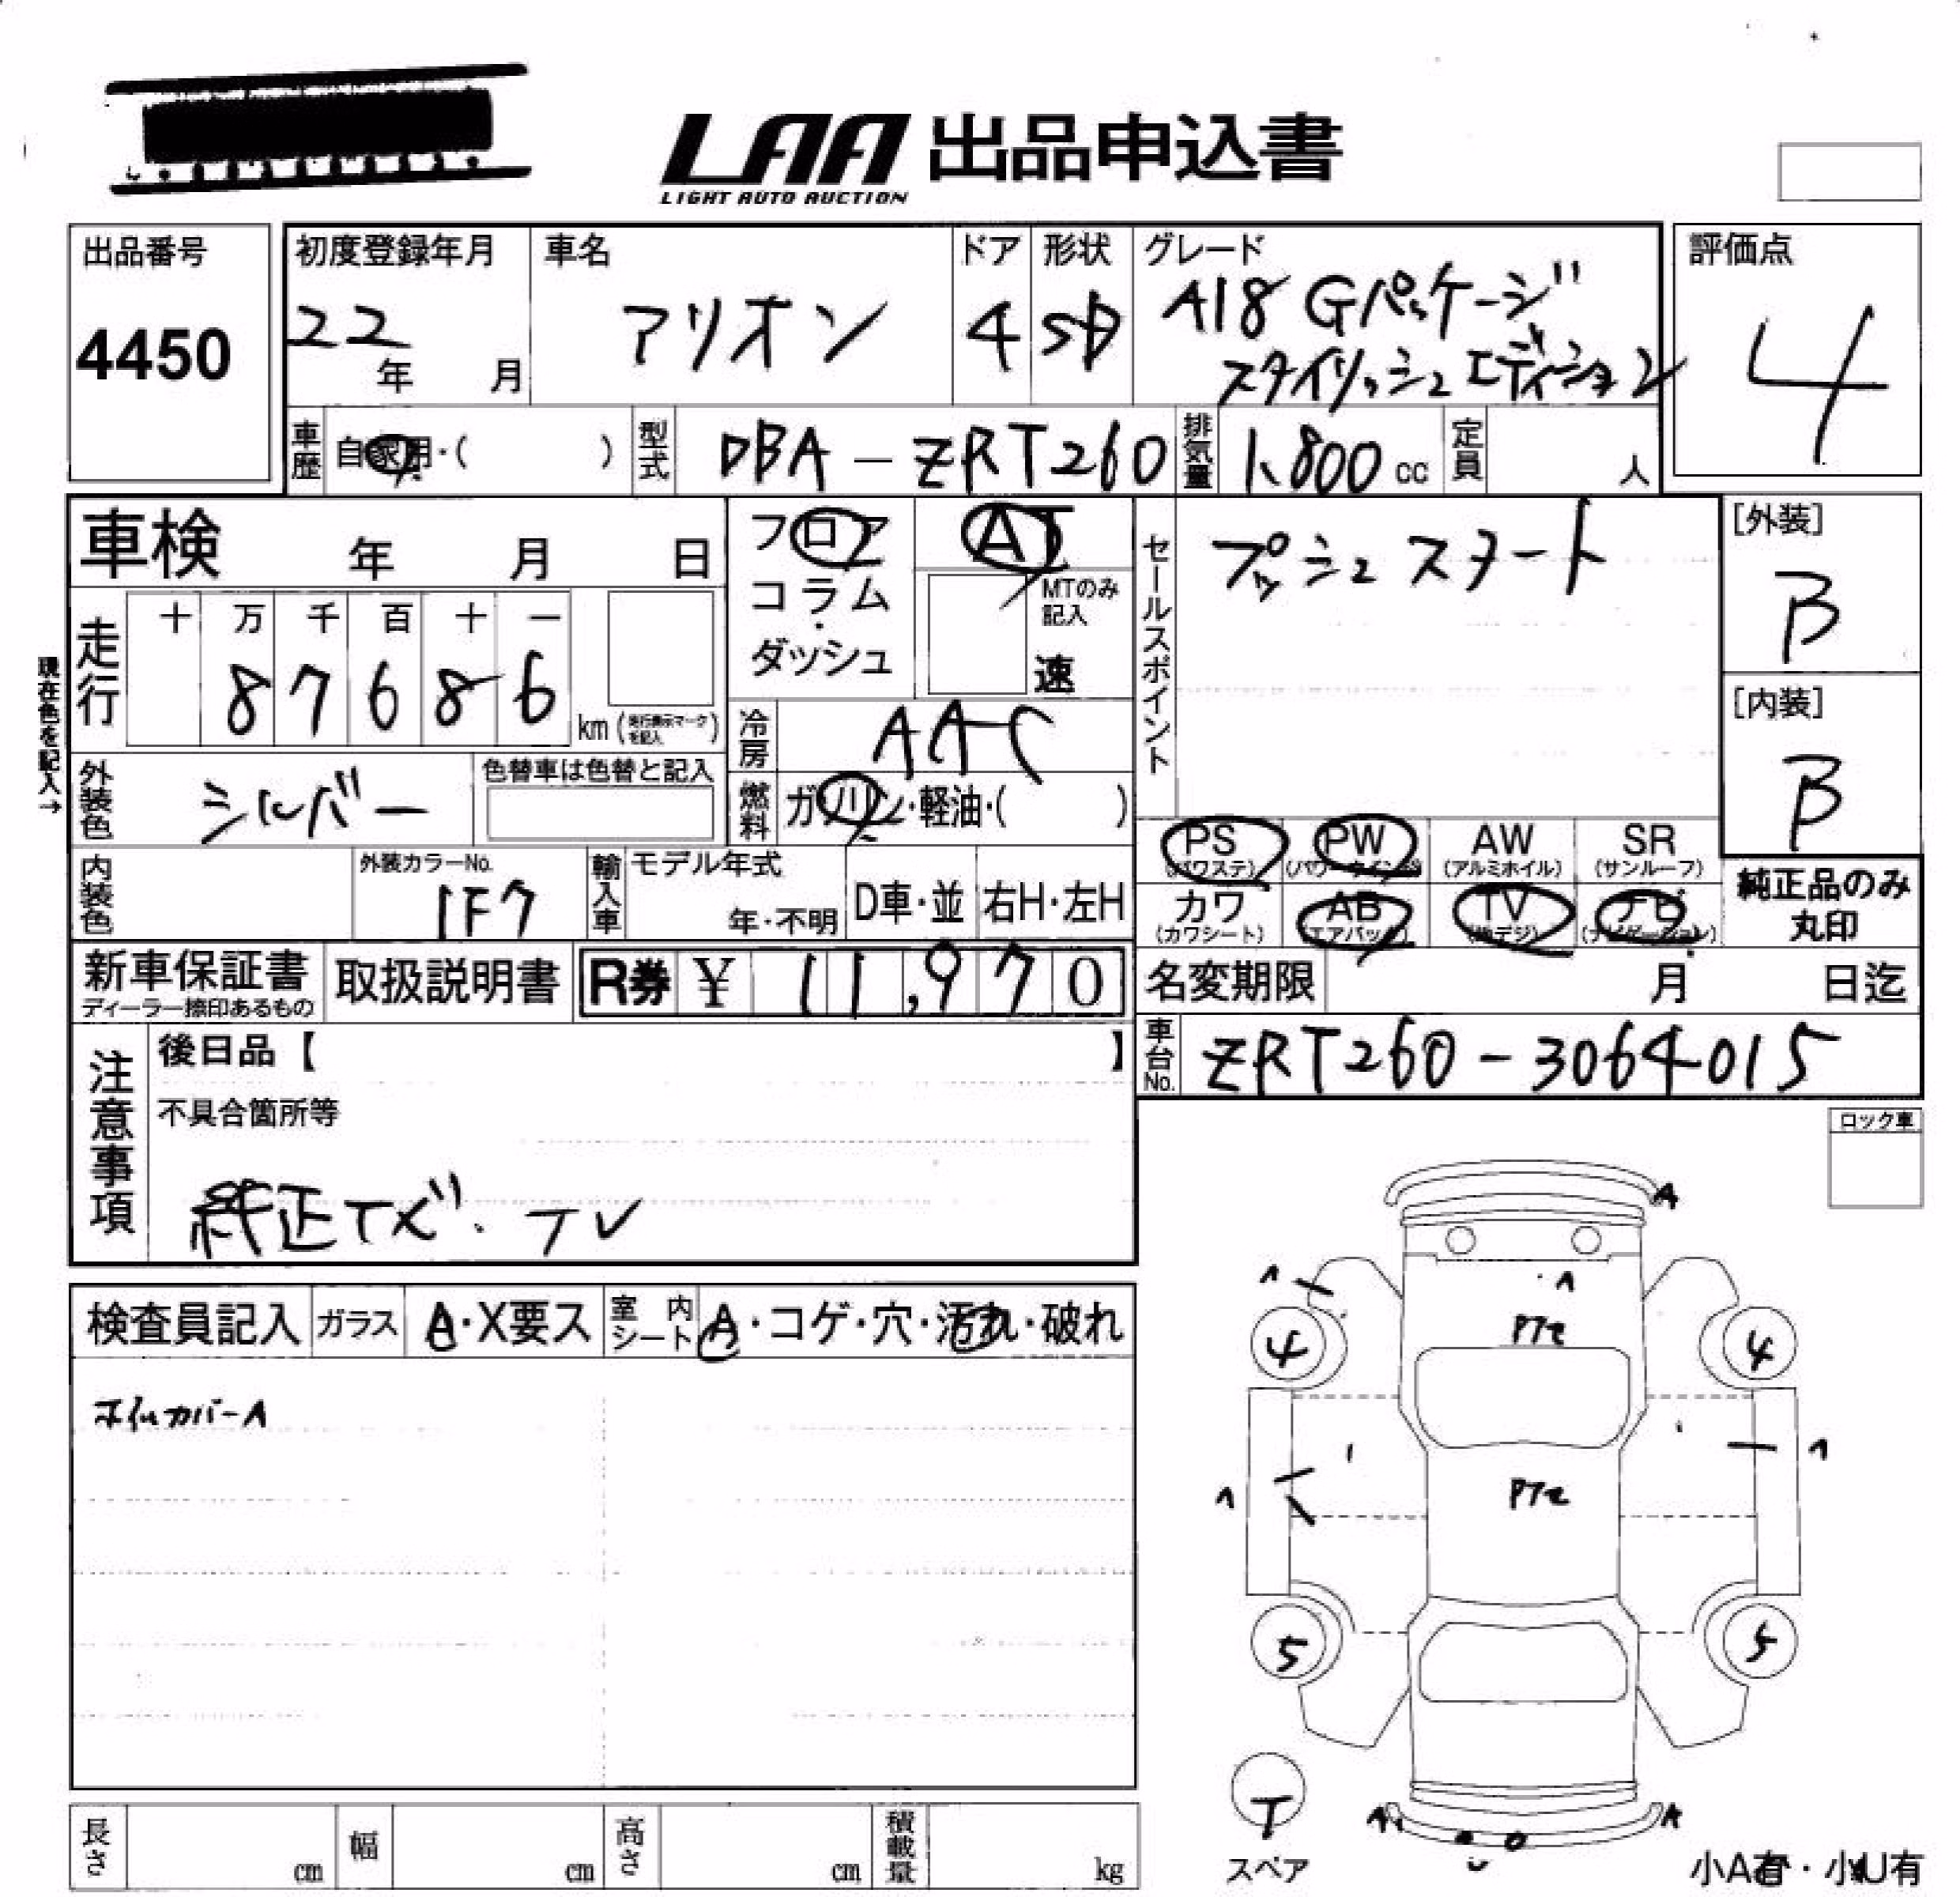 LAA 出品申込書
LIGHT AUTO AUCTION
出品番号
4450
初度登録年月
22
年 月
車名
アリオン
ドア
4
形状
SD
グレード
A18 Gパッケージ
スタイリッシュエディション
評価点
4
車歴 自家用・( )
型式 DBA-ZRT260
排気量 1,800 cc
定員 人
車検 年 月 日
フロア
コラム
・
ダッシュ
AT
MTのみ
記入
速
セールスポイント
プッシュスタート
[外装]
B
[内装]
B
現在色を記入→
走行
十 万 千 百 十 一
8 7 6 8 6
km(走行表示マークを記入)
冷房 AAC
外装色 シルバー
色替車は色替と記入
燃料 ガソリン・軽油・( )
PS
(パワステ)
PW
(パワーウインドウ)
AW
(アルミホイル)
SR
(サンルーフ)
カワ
(カワシート)
AB
(エアバック)
TV
(地デジ)
ナビ
(ナビゲーション)
純正品のみ
丸印
内装色
外装カラーNo.
1F7
輸入車
モデル年式
年・不明
D車・並
右H・左H
新車保証書
ディーラー捺印あるもの
取扱説明書
R券 ¥ 11,970
名変期限 月 日迄
車台No. ZRT260-3064015
注意事項
後日品【 】
不具合箇所等
純正ナビ・TV
ロック車
検査員記入
ガラス
A・X要ス
室内シート
A・コゲ・穴・汚れ・破れ
ホイルカバーA
A
4
4
5
5
T
スペア
A
A
小A有・小U有
長さ cm
幅 cm
高さ cm
積載量 kg